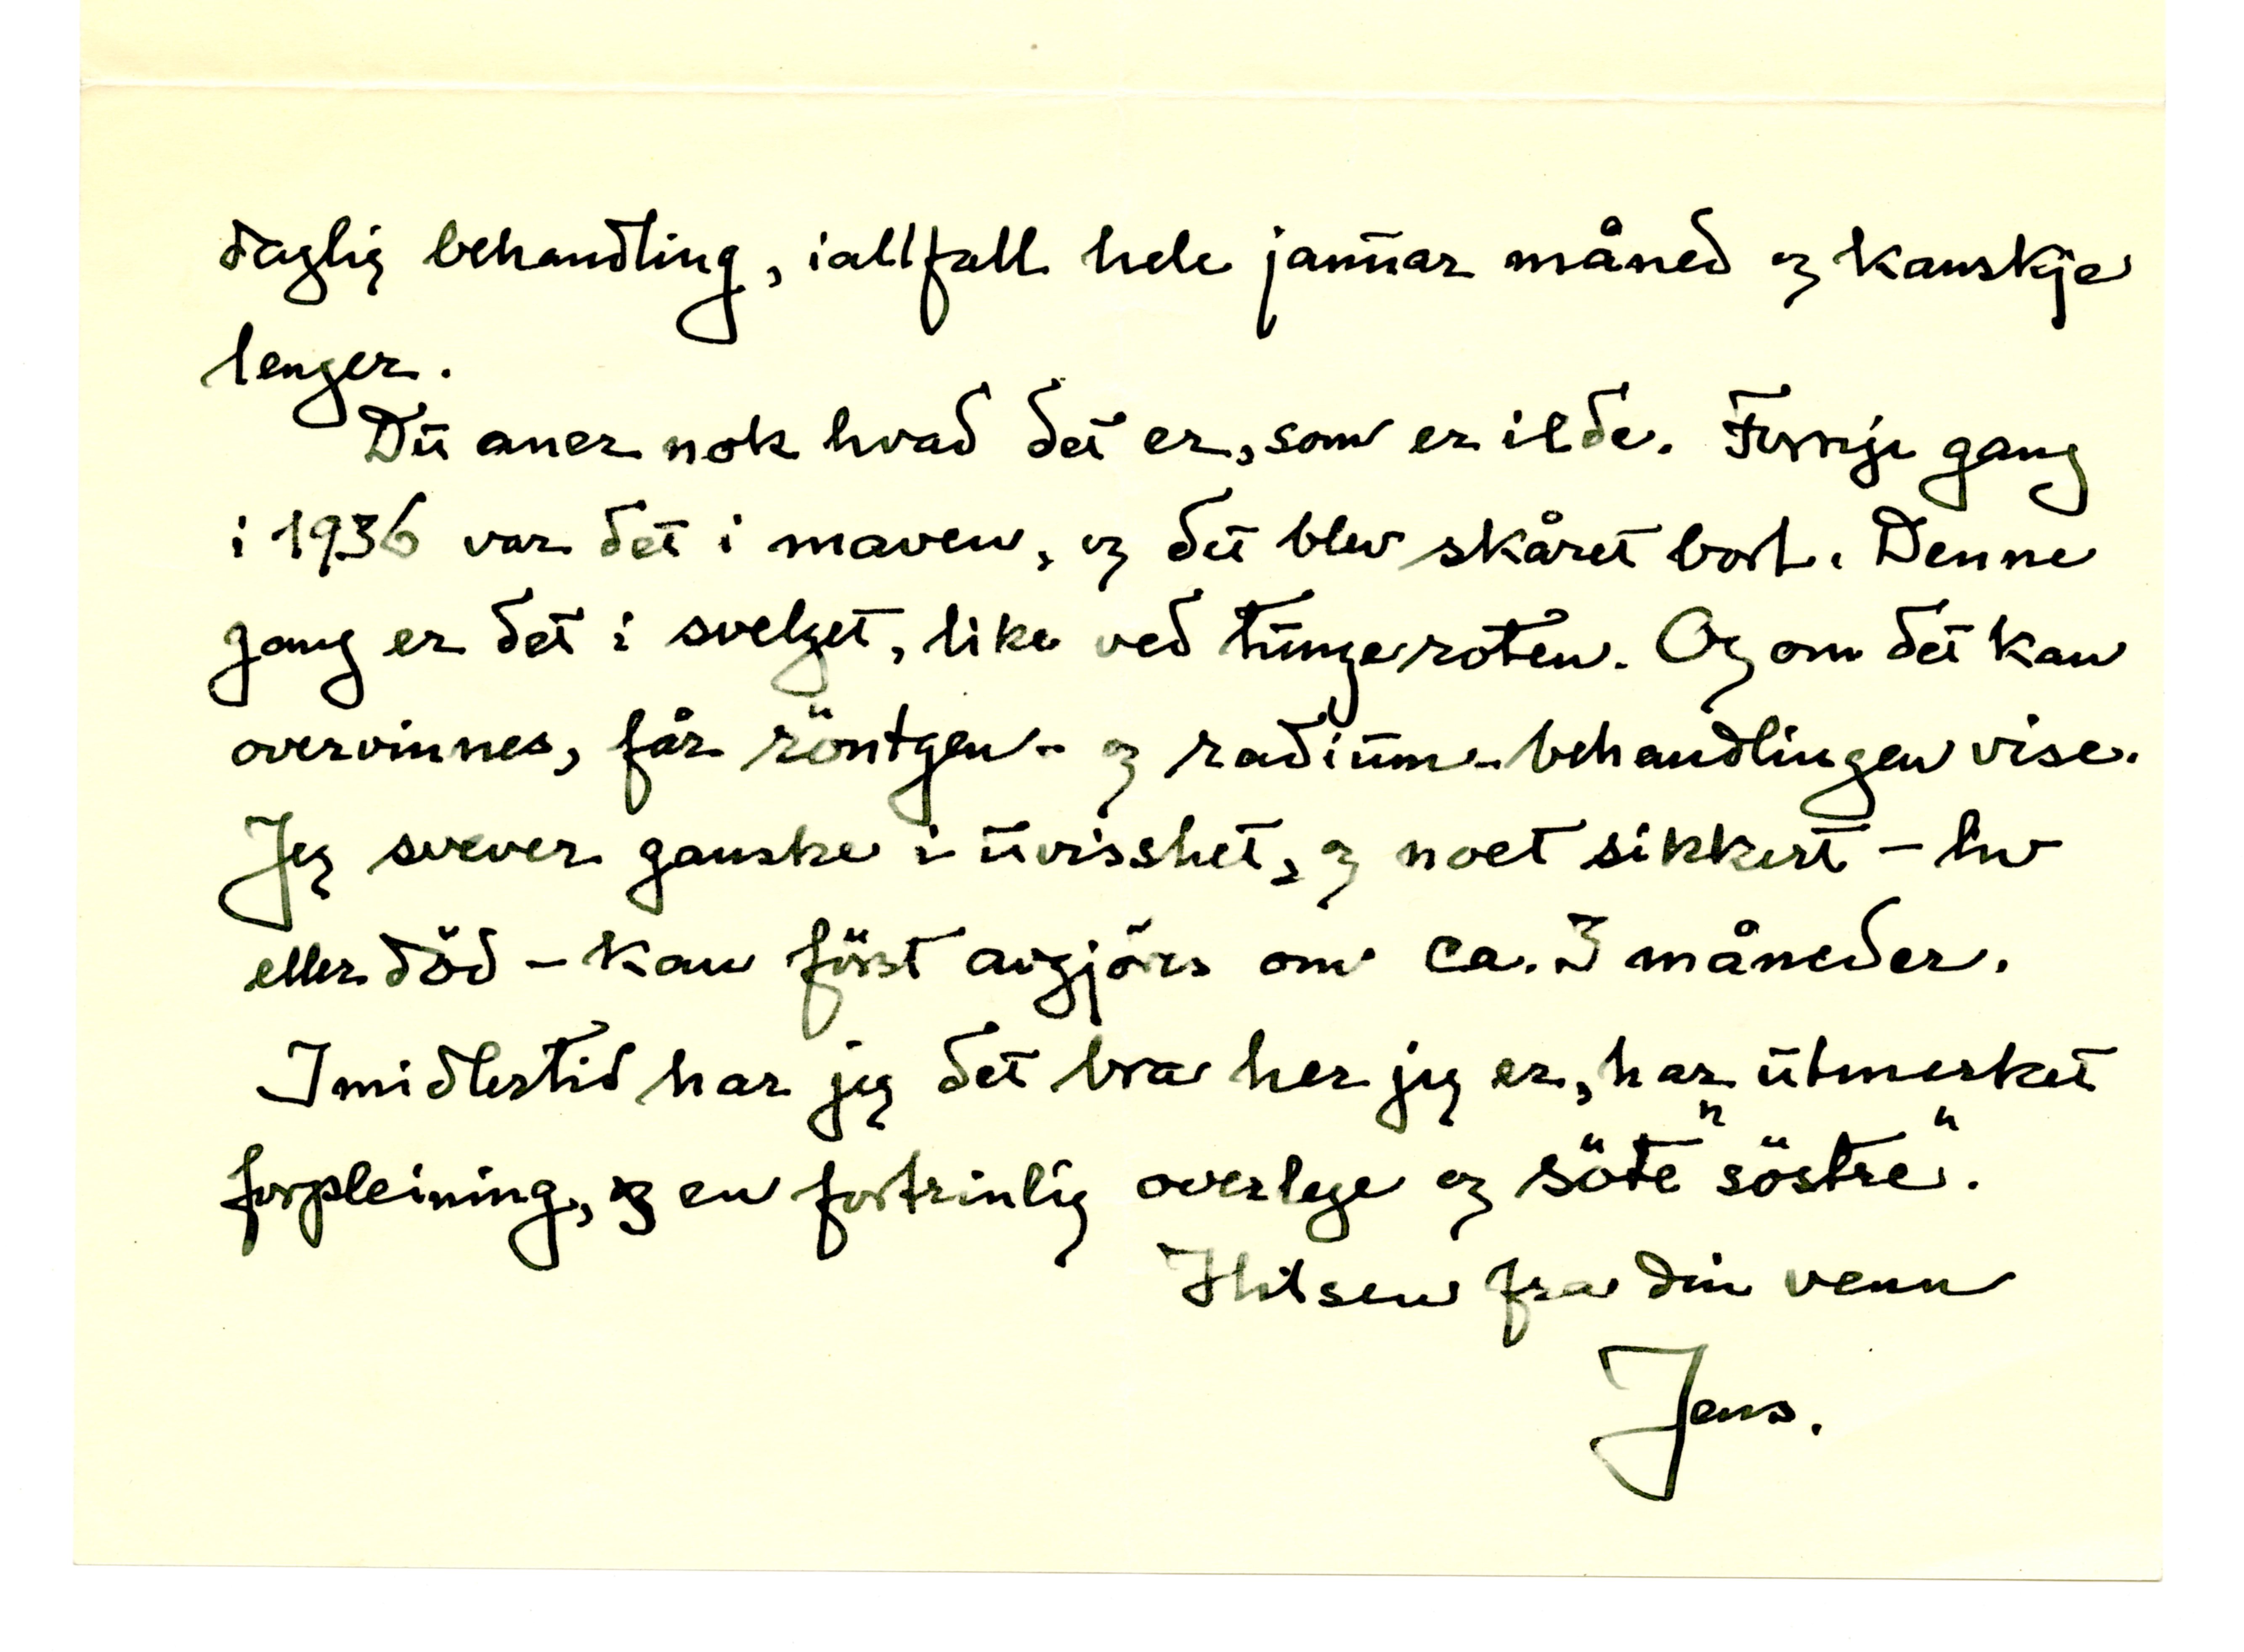 daglig behandling, iallfall hele januar måned og kanskje
lenger.
Du aner nok hvad det er, som er ilde. Forrige gang
i 1936 var det i maven, og det blev skåret bort. Denne
gang er det i svelget, like ved tungeroten. Og om det kan
overvinnes, får röntgen- og radium-behandlingen vise.
Jeg svever ganske i uvisshet, og noet sikkert – liv
eller död – kan först avgjöres om ca. 3 måneder.
Imidlertid har jeg det bra her jeg er, har utmerket
forpleining, og en fortrinlig overlege og söte "söstre".
Hilsen fra din venn
Jens.